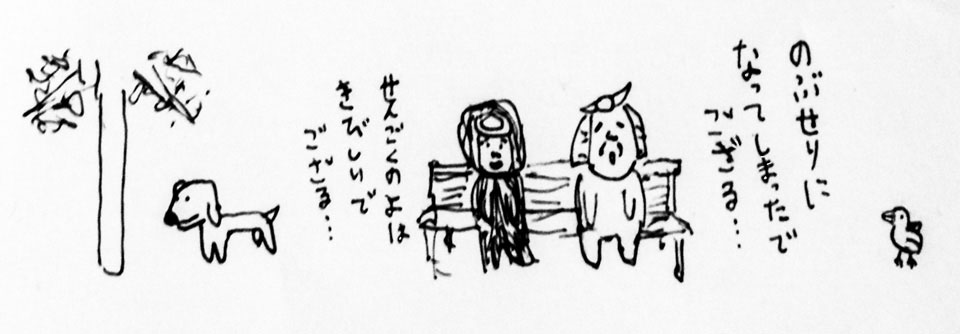 のぶせりに
なってしまったで
ござる…
せんごくのよは
きびしいで
ござる…